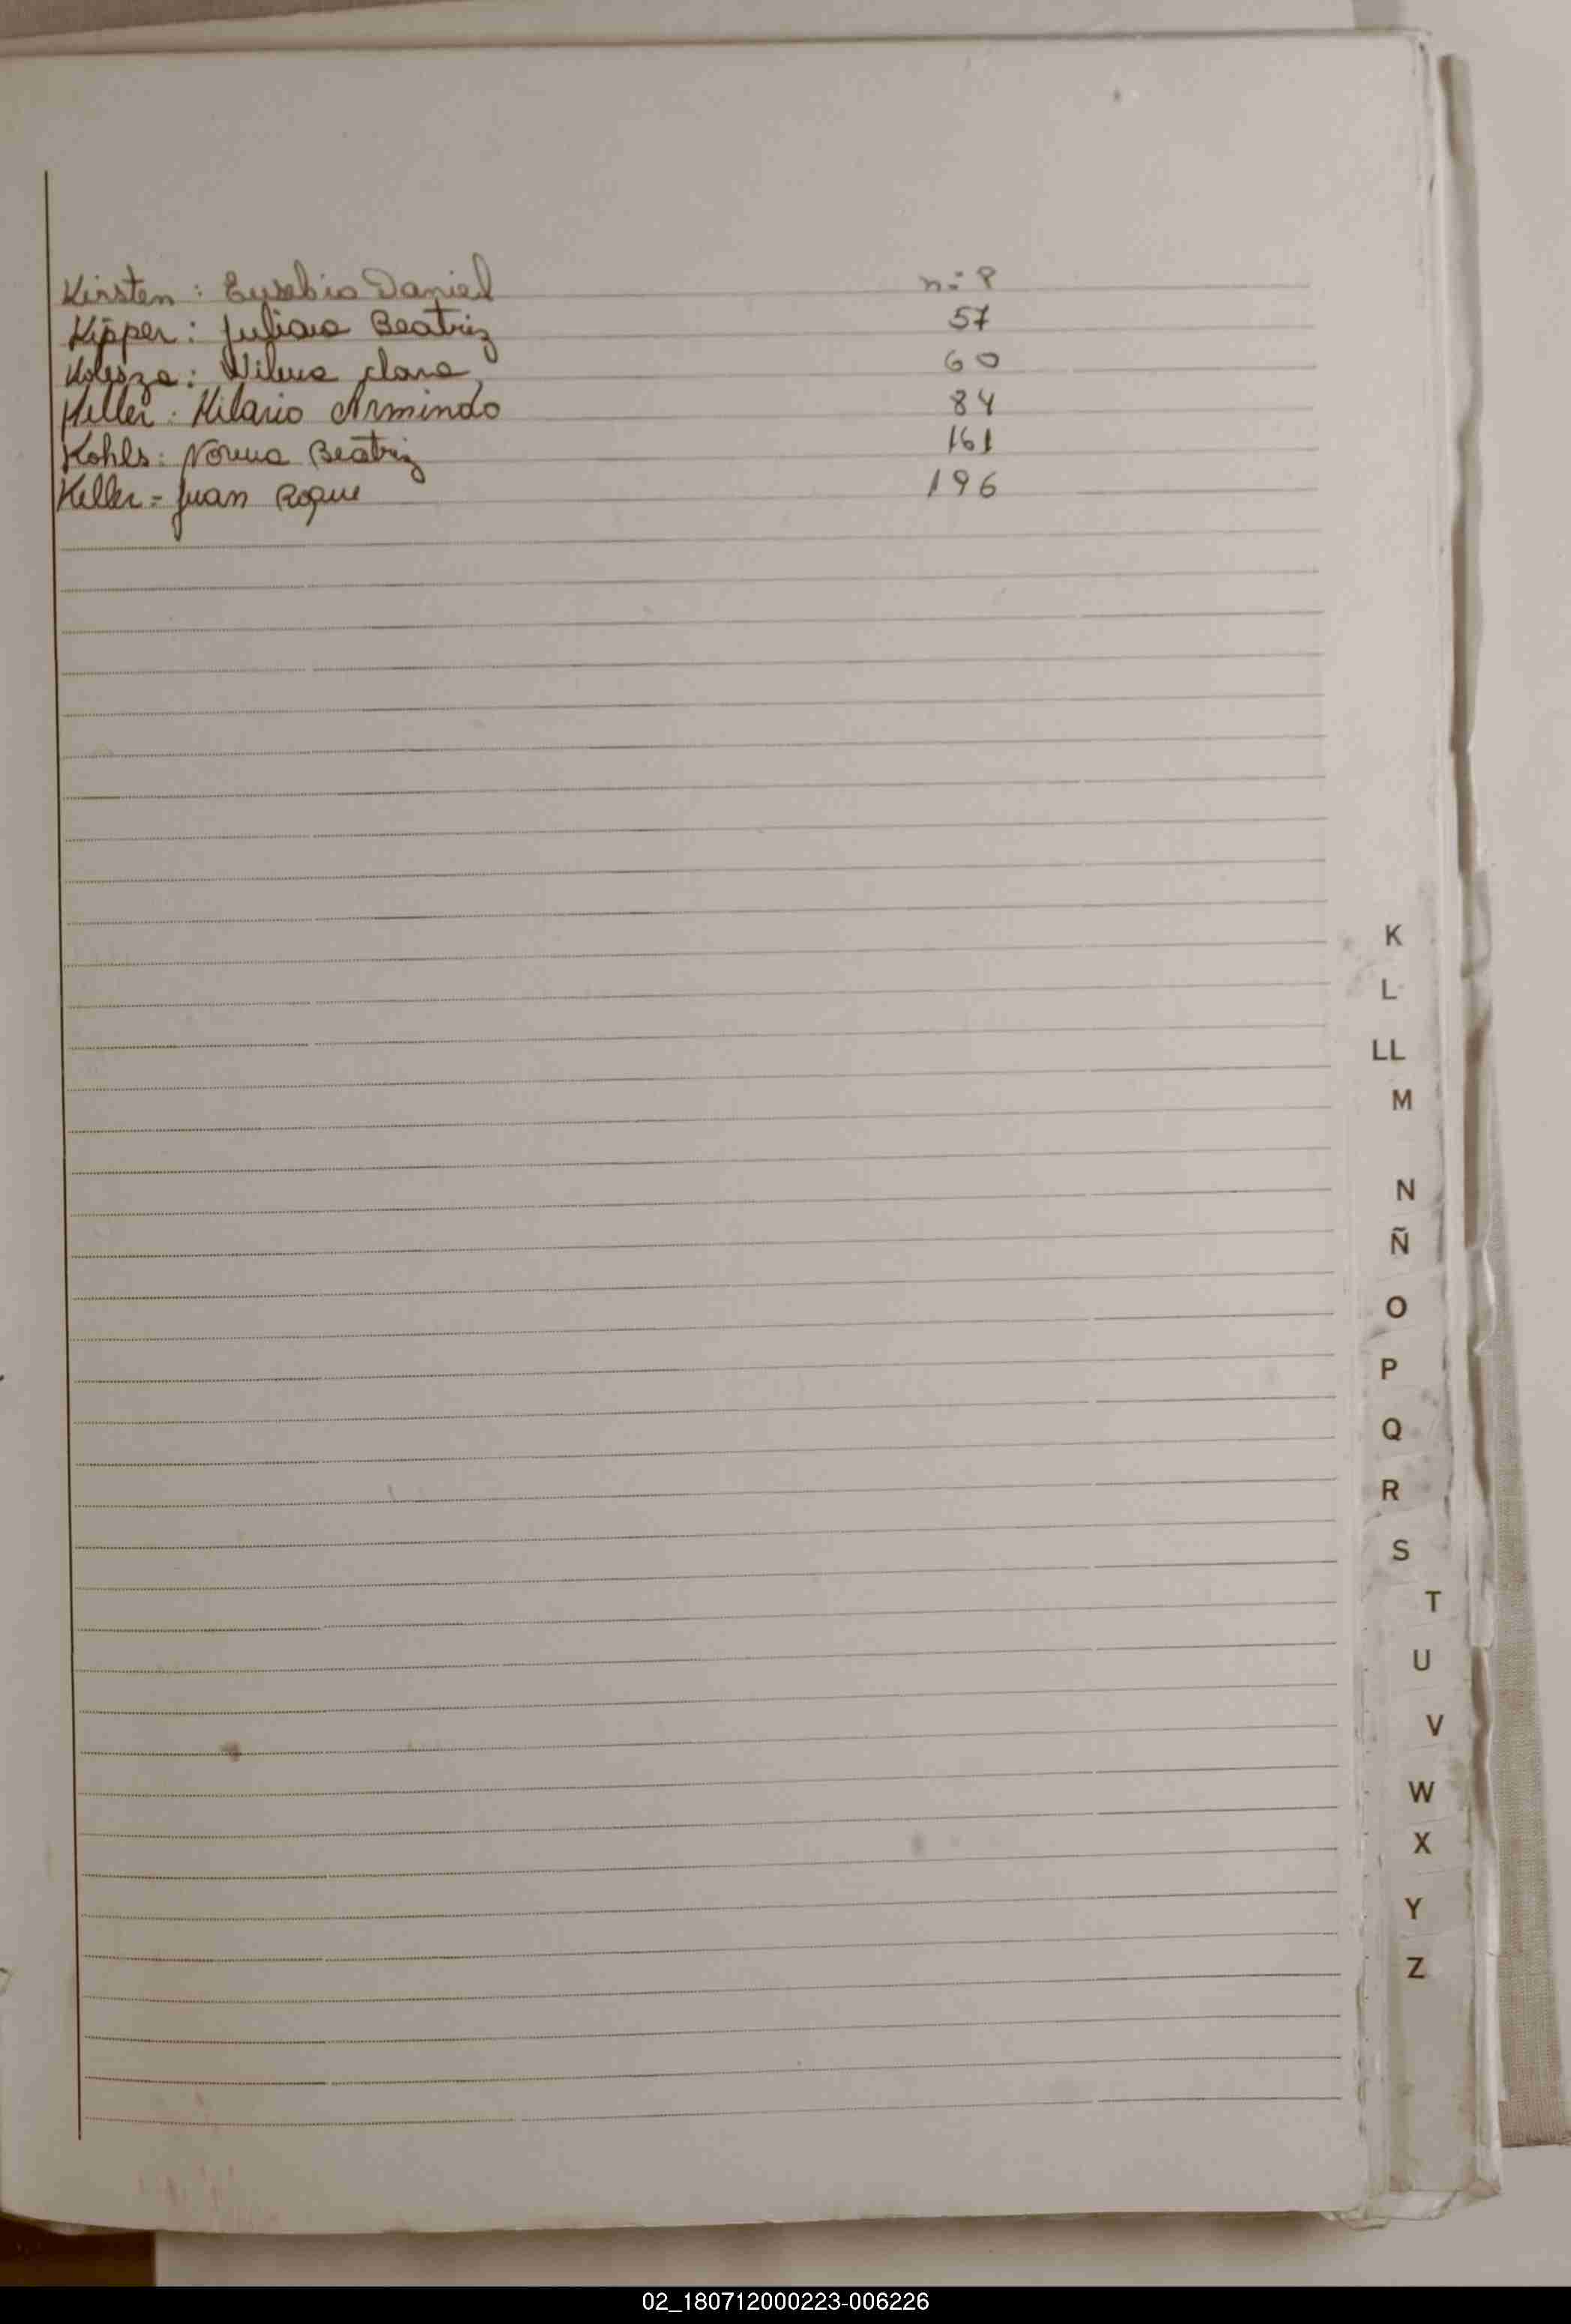 Kirsten: Eusebio Daniel n:= 8
Kipper: Juliana Beatriz 57
Wilma Clara 60
Keller: Hilario Armindo 84
Kohls: Norma Beatriz 161
Keller = Juan Roque 196
K
L
LL
M
N
Ñ
O
P
Q
R
S
T
U
V
W
X
Y
Z
02_180712000223-006226